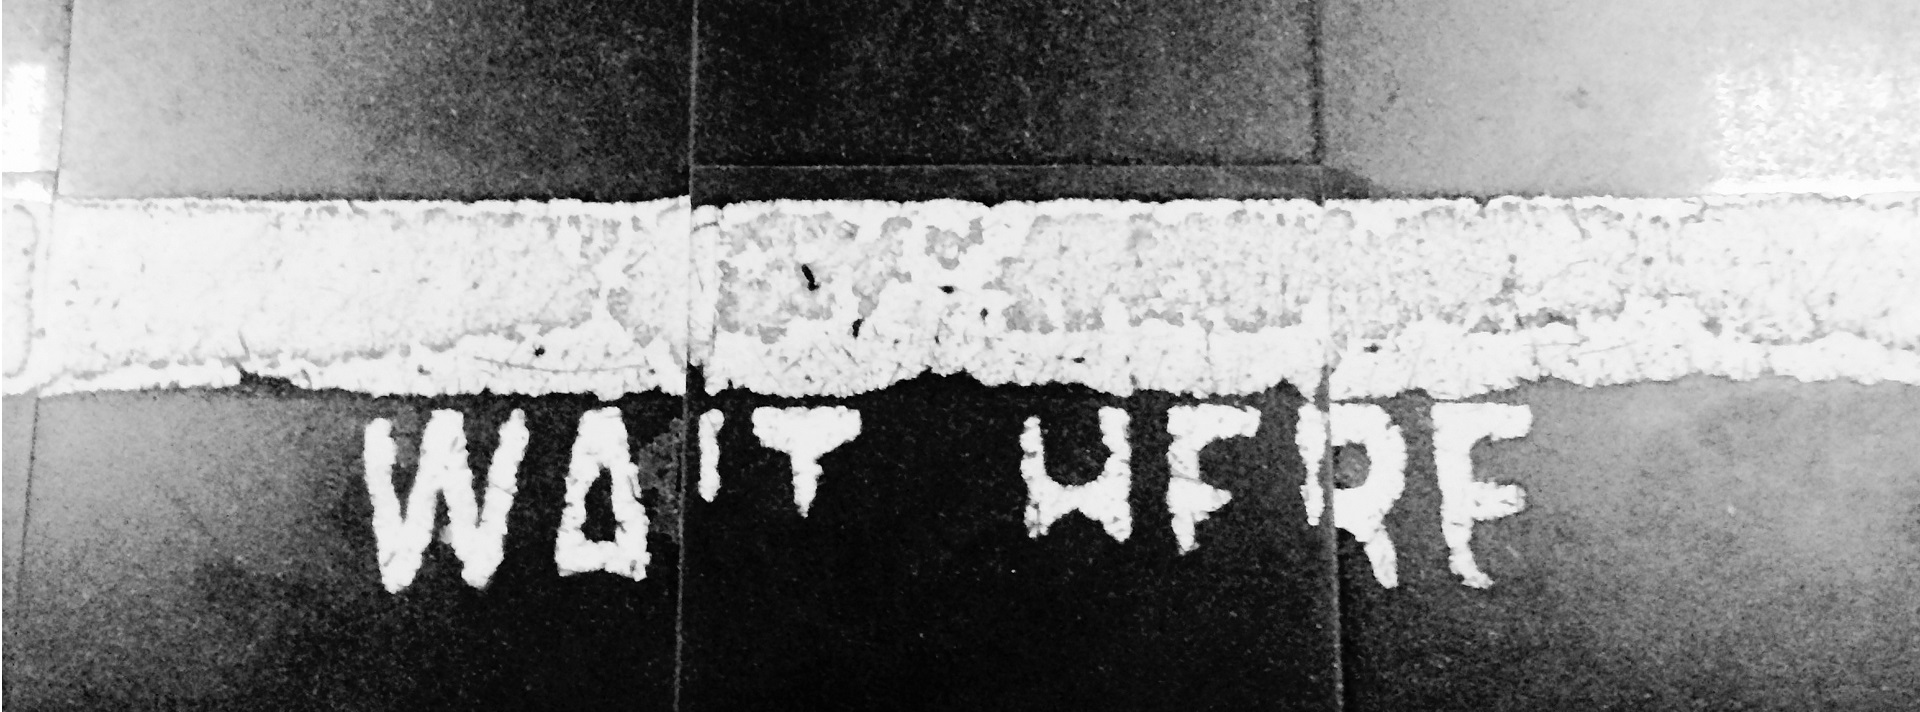 WAIT HERE